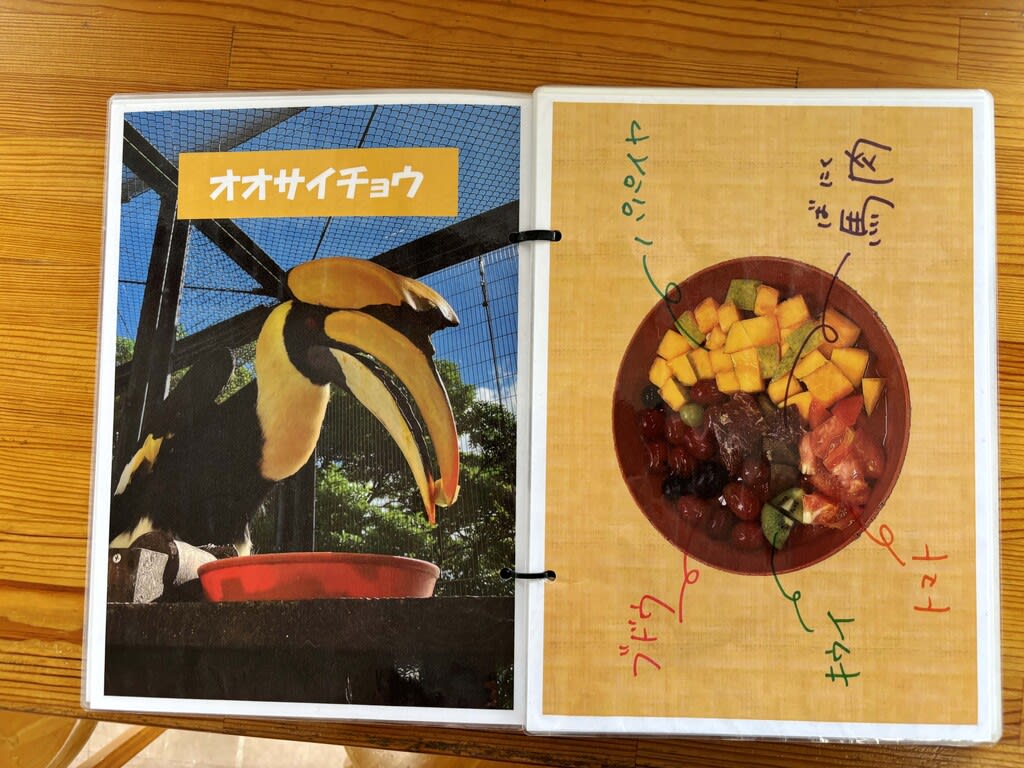 オオサイチョウ
パパイヤ
ばにく
馬肉
ブドウ
キウイ
トマト